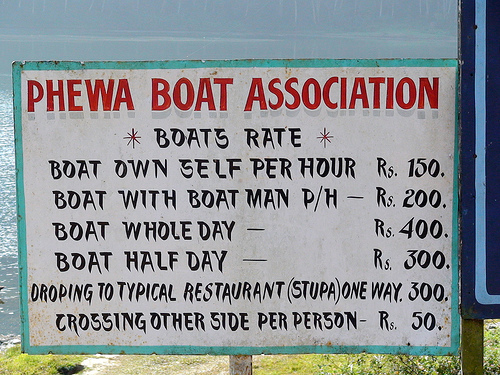 PHEWA BOAT ASSOCIATION
* BOATS RATE *
BOAT OWN SELF PER HOUR Rs. 150.
BOAT WITH BOAT MAN P/H – Rs. 200.
BOAT WHOLE DAY – Rs. 400.
BOAT HALF DAY – Rs. 300.
DROPING TO TYPICAL RESTAURANT (STUPA) ONE WAY. 300.
CROSSING OTHER SIDE PER PERSON – Rs. 50.